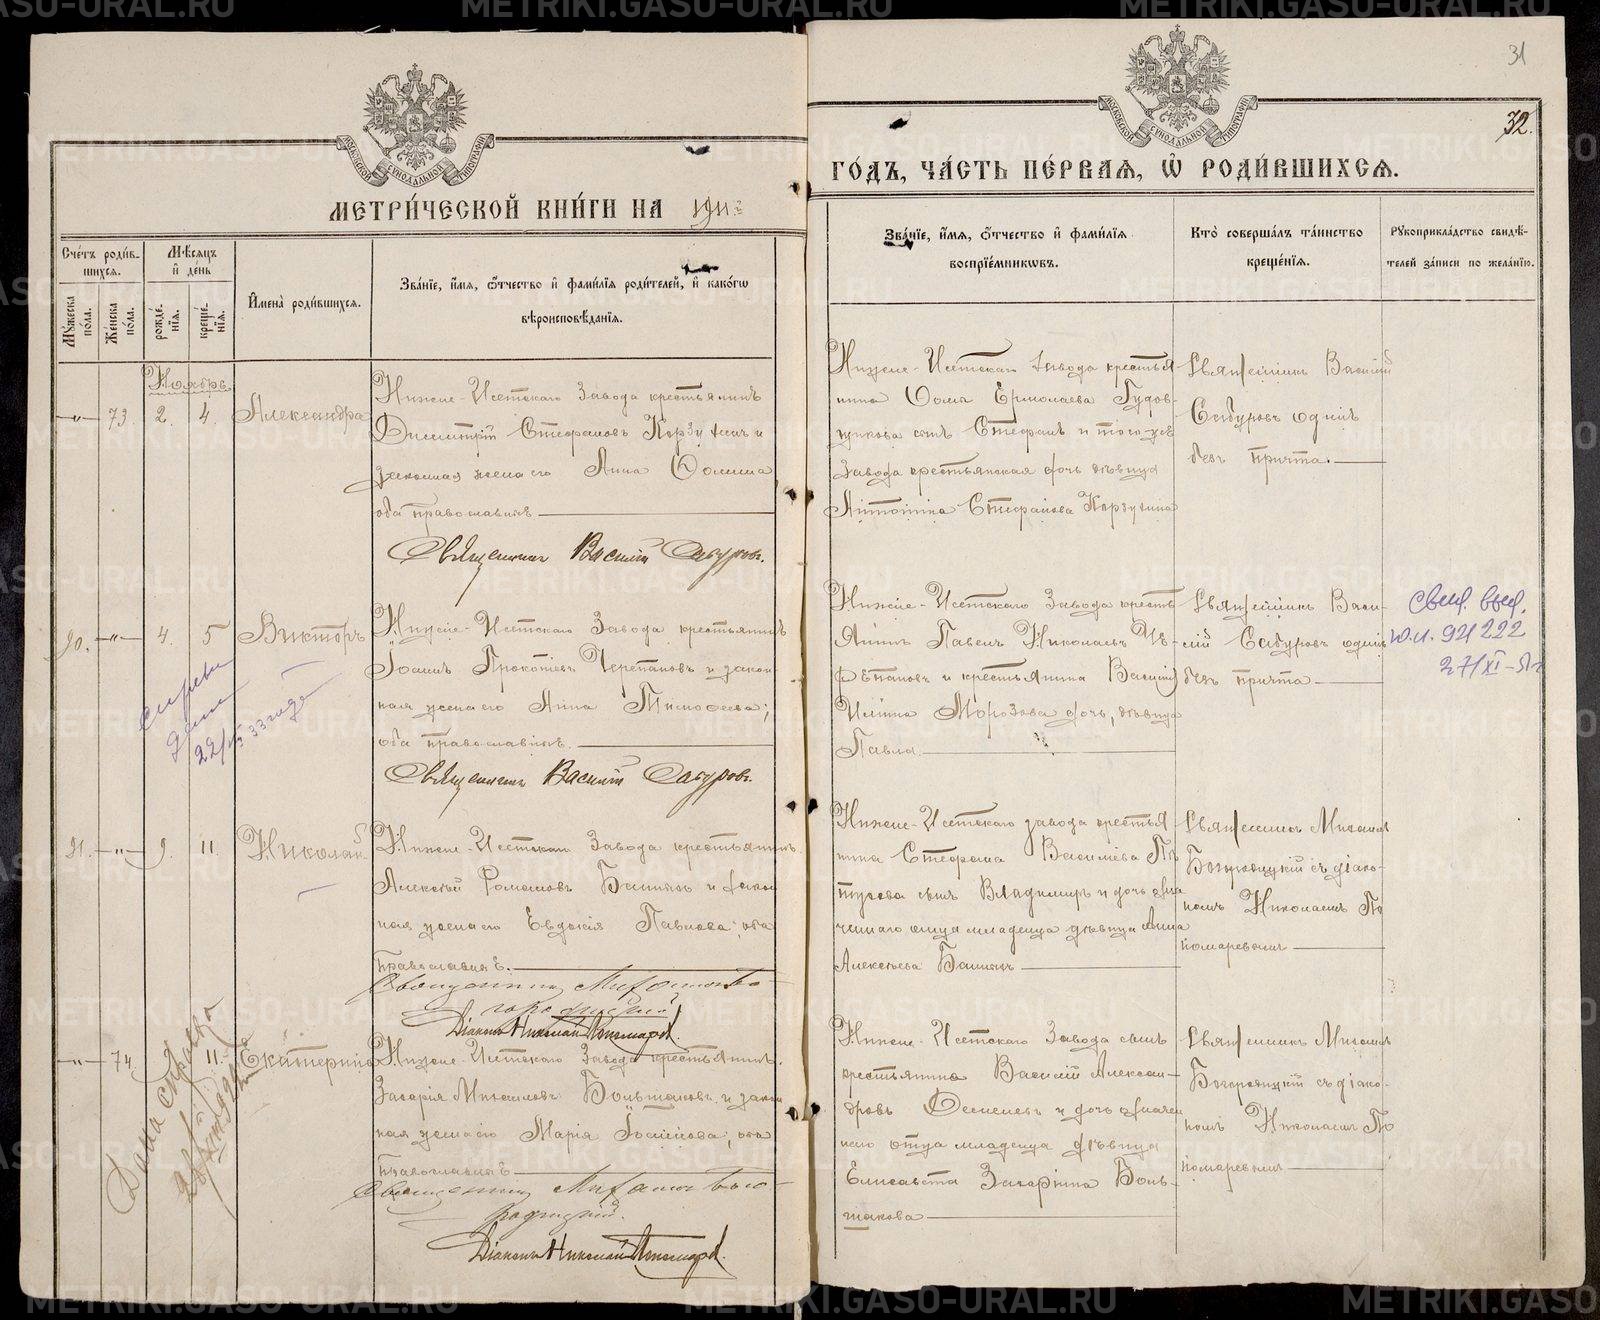 МЕТРИ́ЧЕСКОЙ КНИ́ГИ НА 1911
ГО́ДЪ, ЧА́СТЬ ПЕ́РВАѦ, Ѡ҆ РОДИ́ВШИХСѦ.
31
32.
МОСКОВСКОЙ СѴНОДАЛЬНОЙ ТИПОГРАФІИ
МОСКОВСКОЙ СѴНОДАЛЬНОЙ ТИПОГРАФІИ
Сче́тъ роди́в-
шихсѧ.
Мꙋ́жеска по́ла.
Же́нска по́ла.
Мѣ́сѧцъ и҆ де́нь
рожде́нїѧ.
креще́нїѧ.
И҆мена̀ роди́вшихсѧ.
Зва́нїе, и҆́мѧ, ѻ҆́тчество и҆ фами́лїѧ роди́телей, и҆ како́гѡ
вѣроисповѣ́данїѧ.
Зва́нїе, и҆́мѧ, ѻ҆́тчество и҆ фами́лїѧ
воспрїе́мникѡвъ.
Кто̀ соверша́лъ та́инство
креще́нїѧ.
Рꙋкоприкла́дство свидѣ́-
телей за́писи по жела́нїю.
Ноябрь
73. 2. 4. Александра
Нижне-Исетскаго Завода крестьянинъ
Димитрій Стефановъ Корзунинъ и
законная жена его Анна Фомина
оба православные
Священникъ Василій Сабуровъ.
Нижне-Исетскаго завода крестья
нина Фомы Ермолаева
сынъ Стефанъ и того-же
Завода крестьянская дочь девица
Антонина Стефанова Корзунина
Священникъ Василій
Сабуровъ одинъ
безъ причта.
90. 4. 5 Викторъ
Нижне-Исетскаго Завода крестьянинъ
Іоаннъ Прокопіевъ Черепановъ и закон
ная жена его Анна Тимофеева;
оба православные.
Священникъ Василій Сабуровъ.
Нижне-Исетскаго Завода кресть
янинъ Павелъ Николаевъ
и крестьянина Василія
Ильина Морозова дочь, девица
Павла.
Священникъ Васи-
лій Сабуровъ одинъ
безъ причта
свид. выд.
91222
27/XI-51г
22/VI 33 года
91. 9. 11. Николай
Нижне-Исетскаго Завода крестьянинъ
Алексѣй Романовъ Банныхъ и закон
ная жена его Евдокія Павлова, оба
православные.
Священникъ Михаилъ Бо-
городицкій
Діаконъ Николай Пономаревъ.
Нижне-Исетскаго завода крестья
нина Стефана Васильева Пе
тухова сынъ Владимиръ и дочь
отца младенца девица Анна
Алексѣева Банныхъ
Священникъ Михаилъ
Богородицкій съ діако-
номъ Николаемъ По
номаревымъ
74. 11. Екатерина
Нижне-Исетскаго Завода крестьянинъ
Захарія Михаиловъ Большаковъ и закон
ная жена его Марія Іоаннова, оба
православные
Священникъ Михаилъ Бого-
родицкій.
Діаконъ Николай Пономаревъ.
Нижне-Исетскаго Завода сынъ
крестьянина Василій Алексан-
дровъ и дочь означен
наго отца младенца девица
Елисавета Захаріина Боль-
шакова
Священникъ Михаилъ
Богородицкій съ діако-
номъ Николаемъ По
номаревымъ
Дана справка